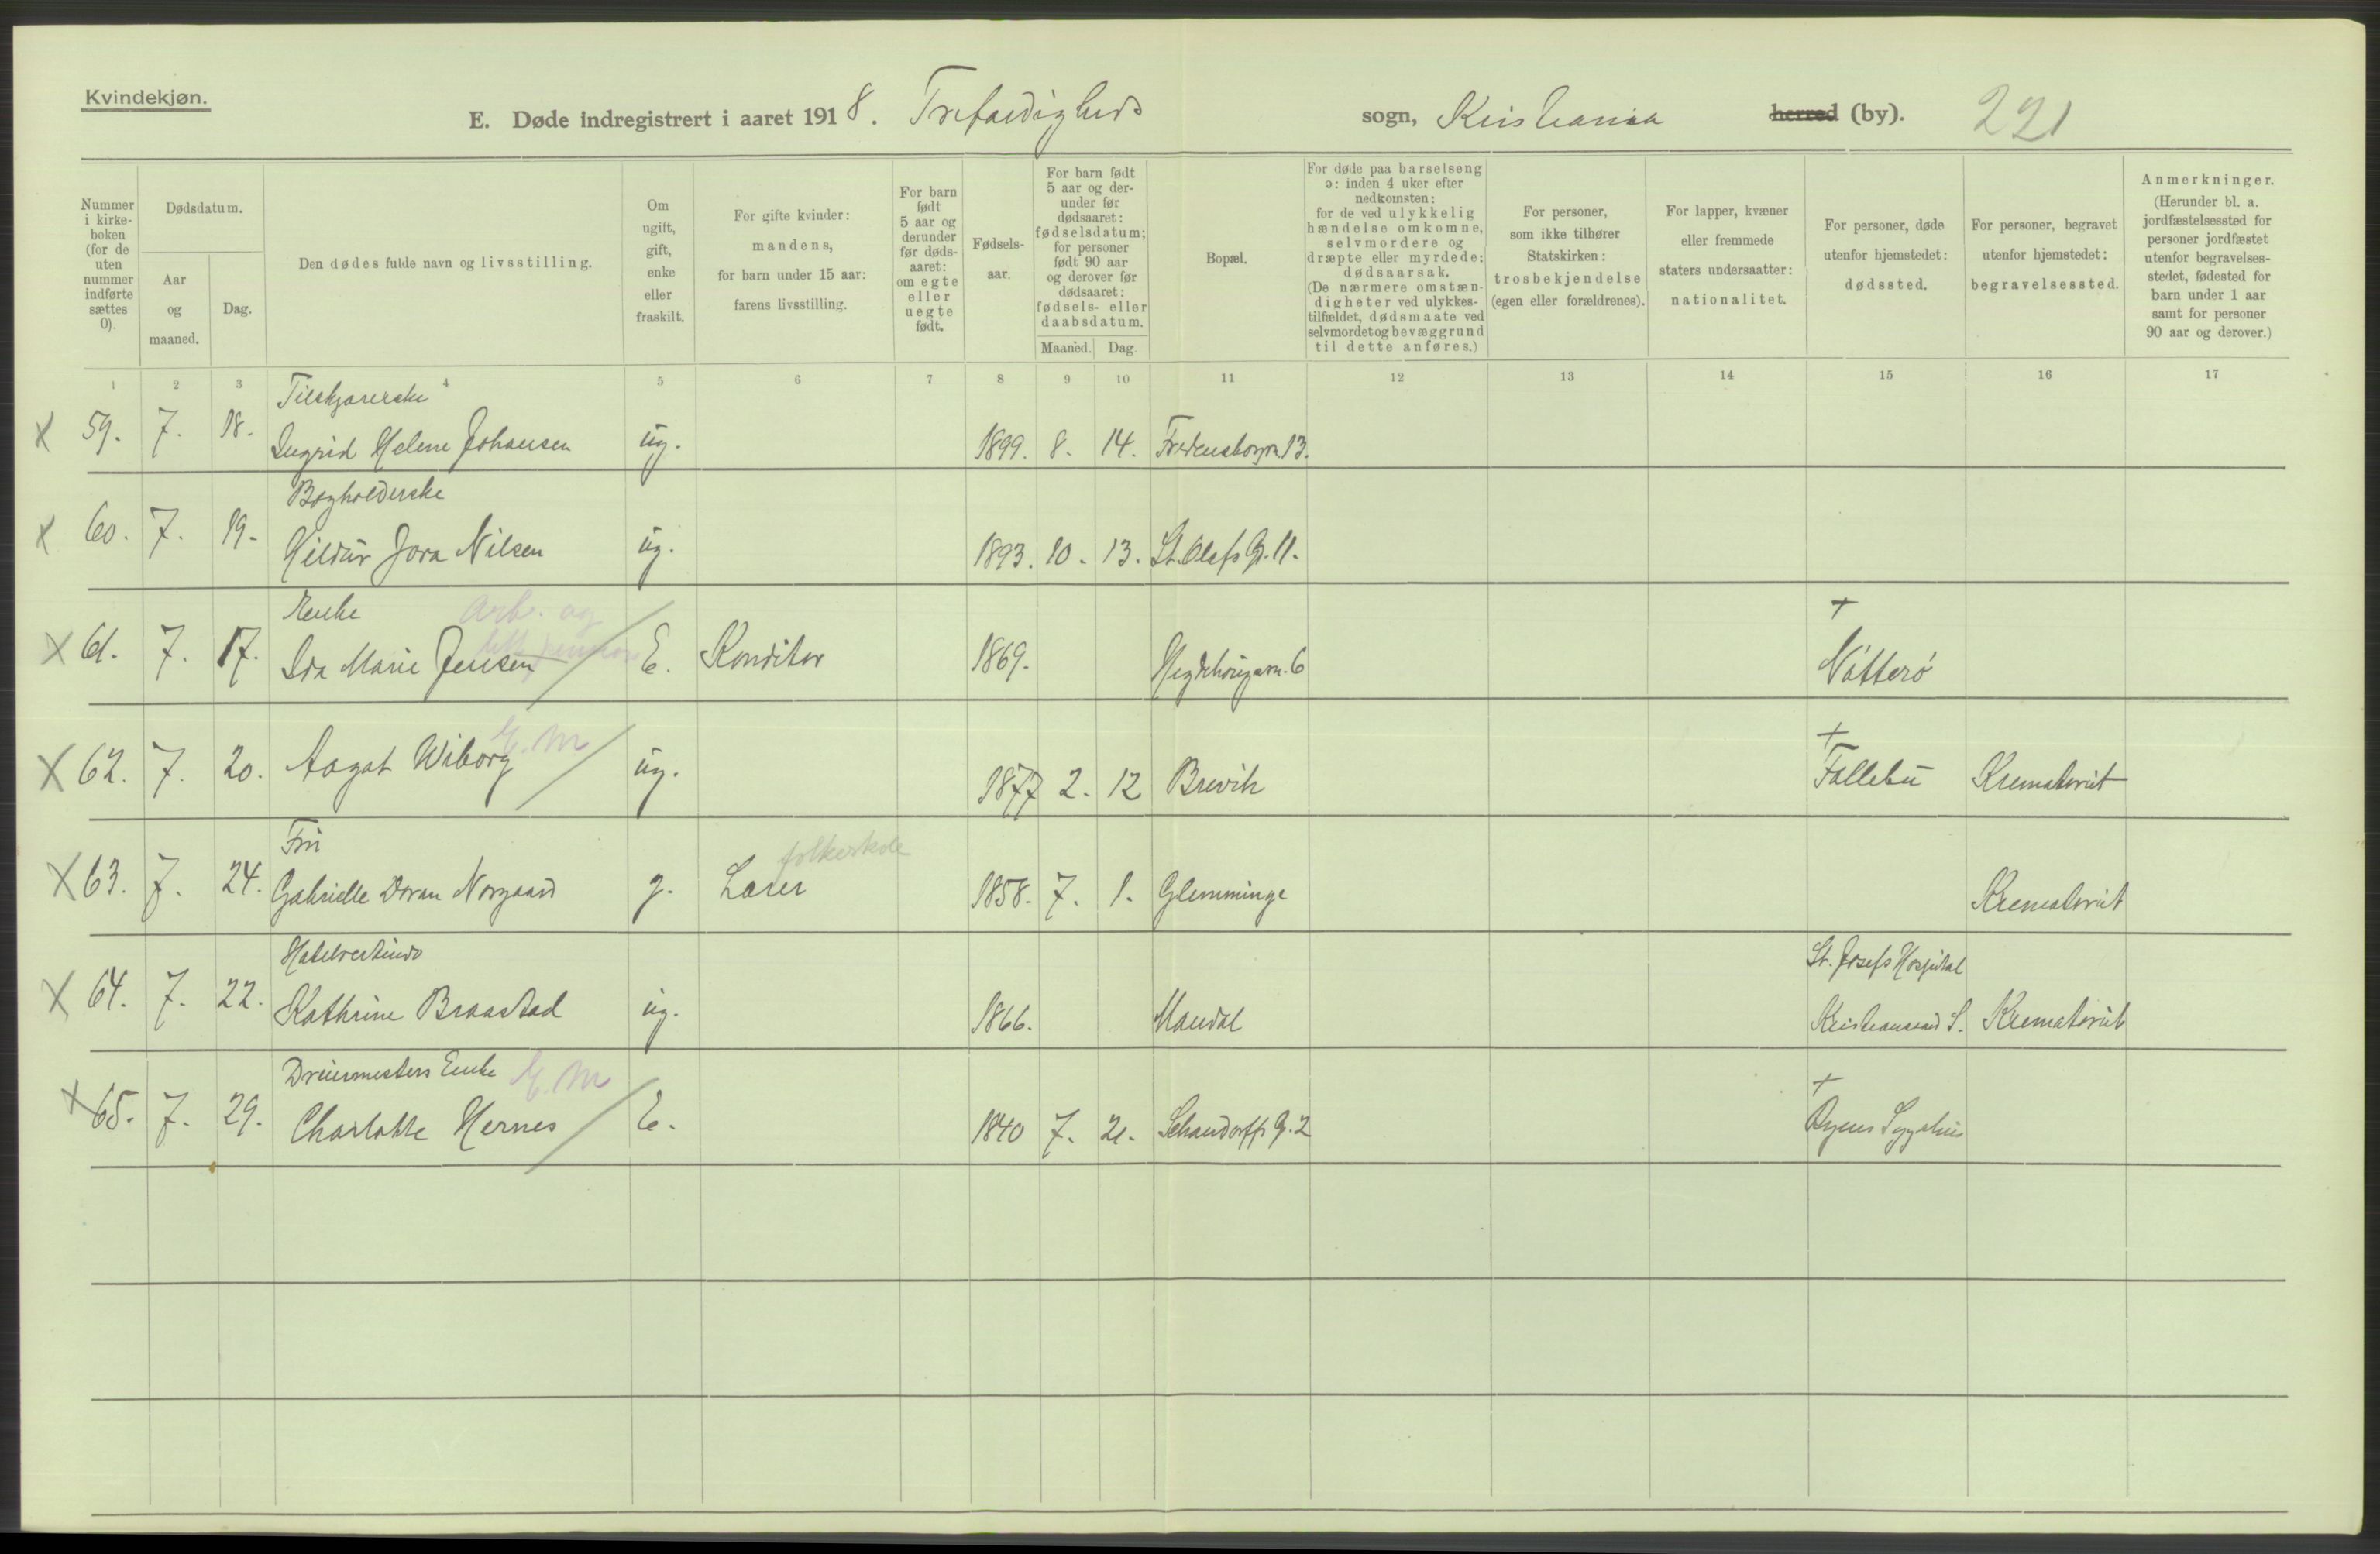 Kvindekjøn.
E. Døde indregistrert i aaret 1918. Trefoldigheds sogn, Kristiania herred (by). 221
Nummer i kirkeboken (for de uten nummer indførte sættes 0).
Dødsdatum.
Aar og maaned.
Dag.
Den dødes fulde navn og livsstilling.
Om ugift, gift, enke eller fraskilt.
For gifte kvinder: mandens, for barn under 15 aar: farens livsstilling.
For barn født 5 aar og derunder før dødsaaret: om egte eller uegte født.
Fødselsaar.
For barn født 5 aar og derunder før dødsaaret: fødselsdatum; for personer født 90 aar og derover før dødsaaret: fødsels- eller daabsdatum.
Maaned. Dag.
Bopæl.
For døde paa barselseng ɔ: inden 4 uker efter nedkomsten: for de ved ulykkelig hændelse omkomne, selvmordere og dræpte eller myrdede: dødsaarsak. (De nærmere omstændigheter ved ulykkestilfældet, dødsmaate ved selvmordet og bevæggrund til dette anføres.)
For personer, som ikke tilhører Statskirken: trosbekjendelse (egen eller forældrenes).
For lapper, kvæner eller fremmede staters undersaatter: nationalitet.
For personer, døde utenfor hjemstedet: dødssted.
For personer, begravet utenfor hjemstedet: begravelsessted.
Anmerkninger. (Herunder bl. a. jordfæstelsessted for personer jordfæstet utenfor begravelsesstedet, fødested for barn under 1 aar samt for personer 90 aar og derover.)
1 2 3 4 5 6 7 8 9 10 11 12 13 14 15 16 17
Tilskjærerske
x 59. 7. 18. Ingrid Helene Johansen ug. 1899. 8. 14. Fredensborgvn. 13.
Bogholderske
x 60. 7. 19. Hildur Jora Nilsen ug. 1893. 10. 13. St. Olafs G. 11.
Enke Arb. og +
x 61. 7. 17. Ida Marie Jensen E. Konditor 1869. Hegdehaugsvn. 6 Nøtterø
E. M +
x 62. 7. 20. Aagot Wiborg ug. 1877 2. 12 Brevik Follebu Krematoriet
Fru folkeskole
x 63. 7. 24. Gabrielle Doran Norgaard g. Lærer 1858. 7. 1. Glemminge Krematoriet
Hotelvertinde St. Josefs Hospital
x 64. 7. 22. Kathrine Braastad ug. 1866. Mandal Kristiansand S. Krematoriet
Dreiermesters Enke E. M +
x 65. 7. 29. Charlotte Hernes E. 1840 7. 21. Schandorffs G. 2 Byens Sygehus